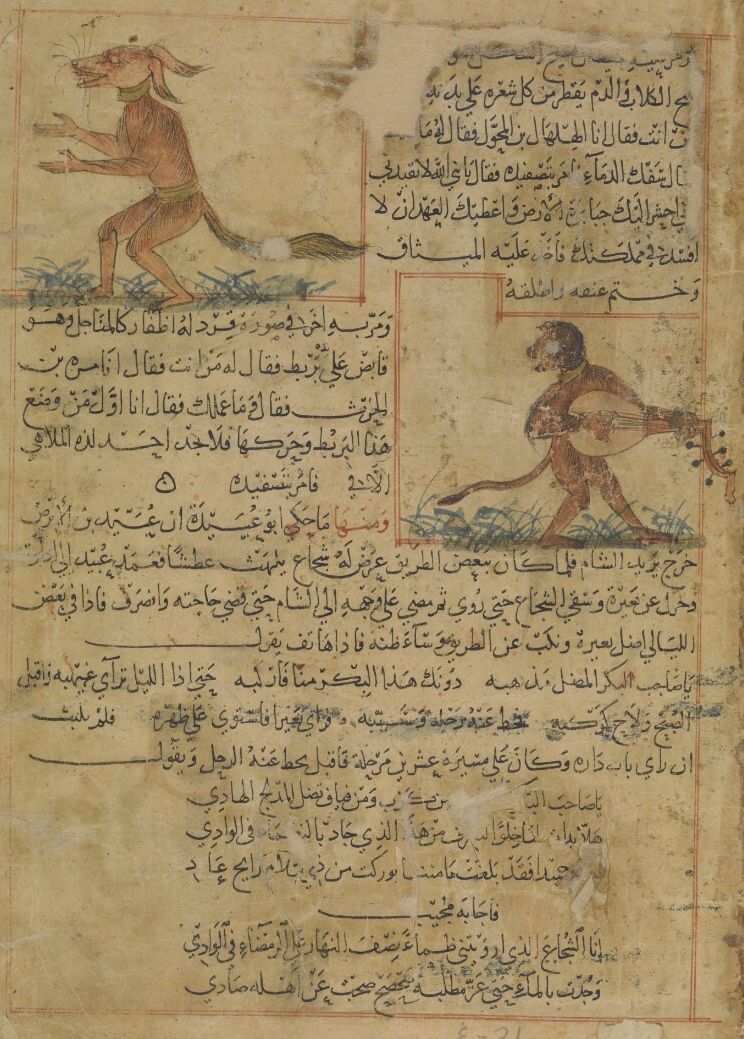 الكلاب والدم يقطر من كل شعرة على بدنه
انت فقال انا الهلهال بن المحول فقال له وما
سفك الدماء امر بتصفيده فقال يا نبي الله لا تقيدني
احشر اليك جبابرة الارض واعطيك العهد ان لا
افسد في مملكتك فاخذ عليه الميثاق
وختم عنقه واطلقه
ومر به اخر في صورة قرد له اظفار كالمناجل وهو
قابض على بربط فقال له من انت فقال انا مرة بن
الحرث فقال وما عملك فقال انا اول من وضع
هذا البربط وحركها فلا يجد احد لذة الملاهي
الا بي فامر بتصفيده
ومنها ما حكي ابو عبيدة ان عبيد بن الابرص
خرج يريد الشام فلما كان ببعض الطريق عرض له شجاع يلهث عطشا فعمد عبيد الى
ونزل عن بعيره وسقي الشجاع حتى روي ثم مضي على وجهه الي الشام حتى قضي حاجته وانصرف فاذا في بعض
الليالي اضل بعيره ونكب عن الطريق وساء ظنه فاذا هاتف يقول
يا صاحب البكر المضل مذهبه دونك هذا البكر منا فاركبه حتى اذا الليل تراي غيهبه واقبل
الصبح ولاح كوكبه فحط عنه رحله وسيبه فراي بعيرا فاستوي على ظهره فلم يلبث
ان راي باب داره وكان على مسيرة عشرين مرحلة فاقبل يحط عنه الرحل ويقول
يا صاحب من كرب ومن فياف تضل المدلج الهادي
هلا الذي جاد في الوادي
حميدا فقد بلغت مامننا بوركت من ذي سلام رايح غاد
فاجابه مجيب
انا الشجاع الذي ارويتني ظماء نصف النهار على الرمضاء في الوادي
وجدت بالماء حتى عز مطلبه عن اهله صادي